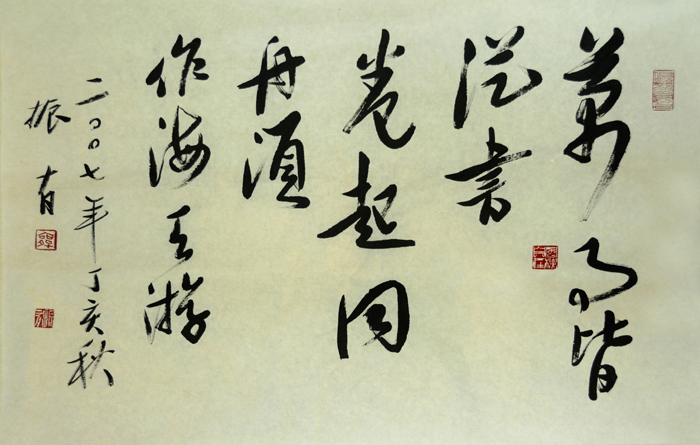 萬事皆
從書
卷起同
舟須
作海天游
二〇〇七年丁亥秋
振有